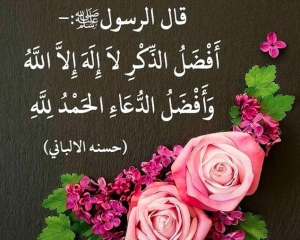 قال الرسول ﷺ:-
أَفْضَلُ الذِّكْرِ لاَ إِلَهَ إِلاَّ اللَّهُ
وَأَفْضَلُ الدُّعَاءِ الحَمْدُ لِلَّهِ
(حسنه الالباني)